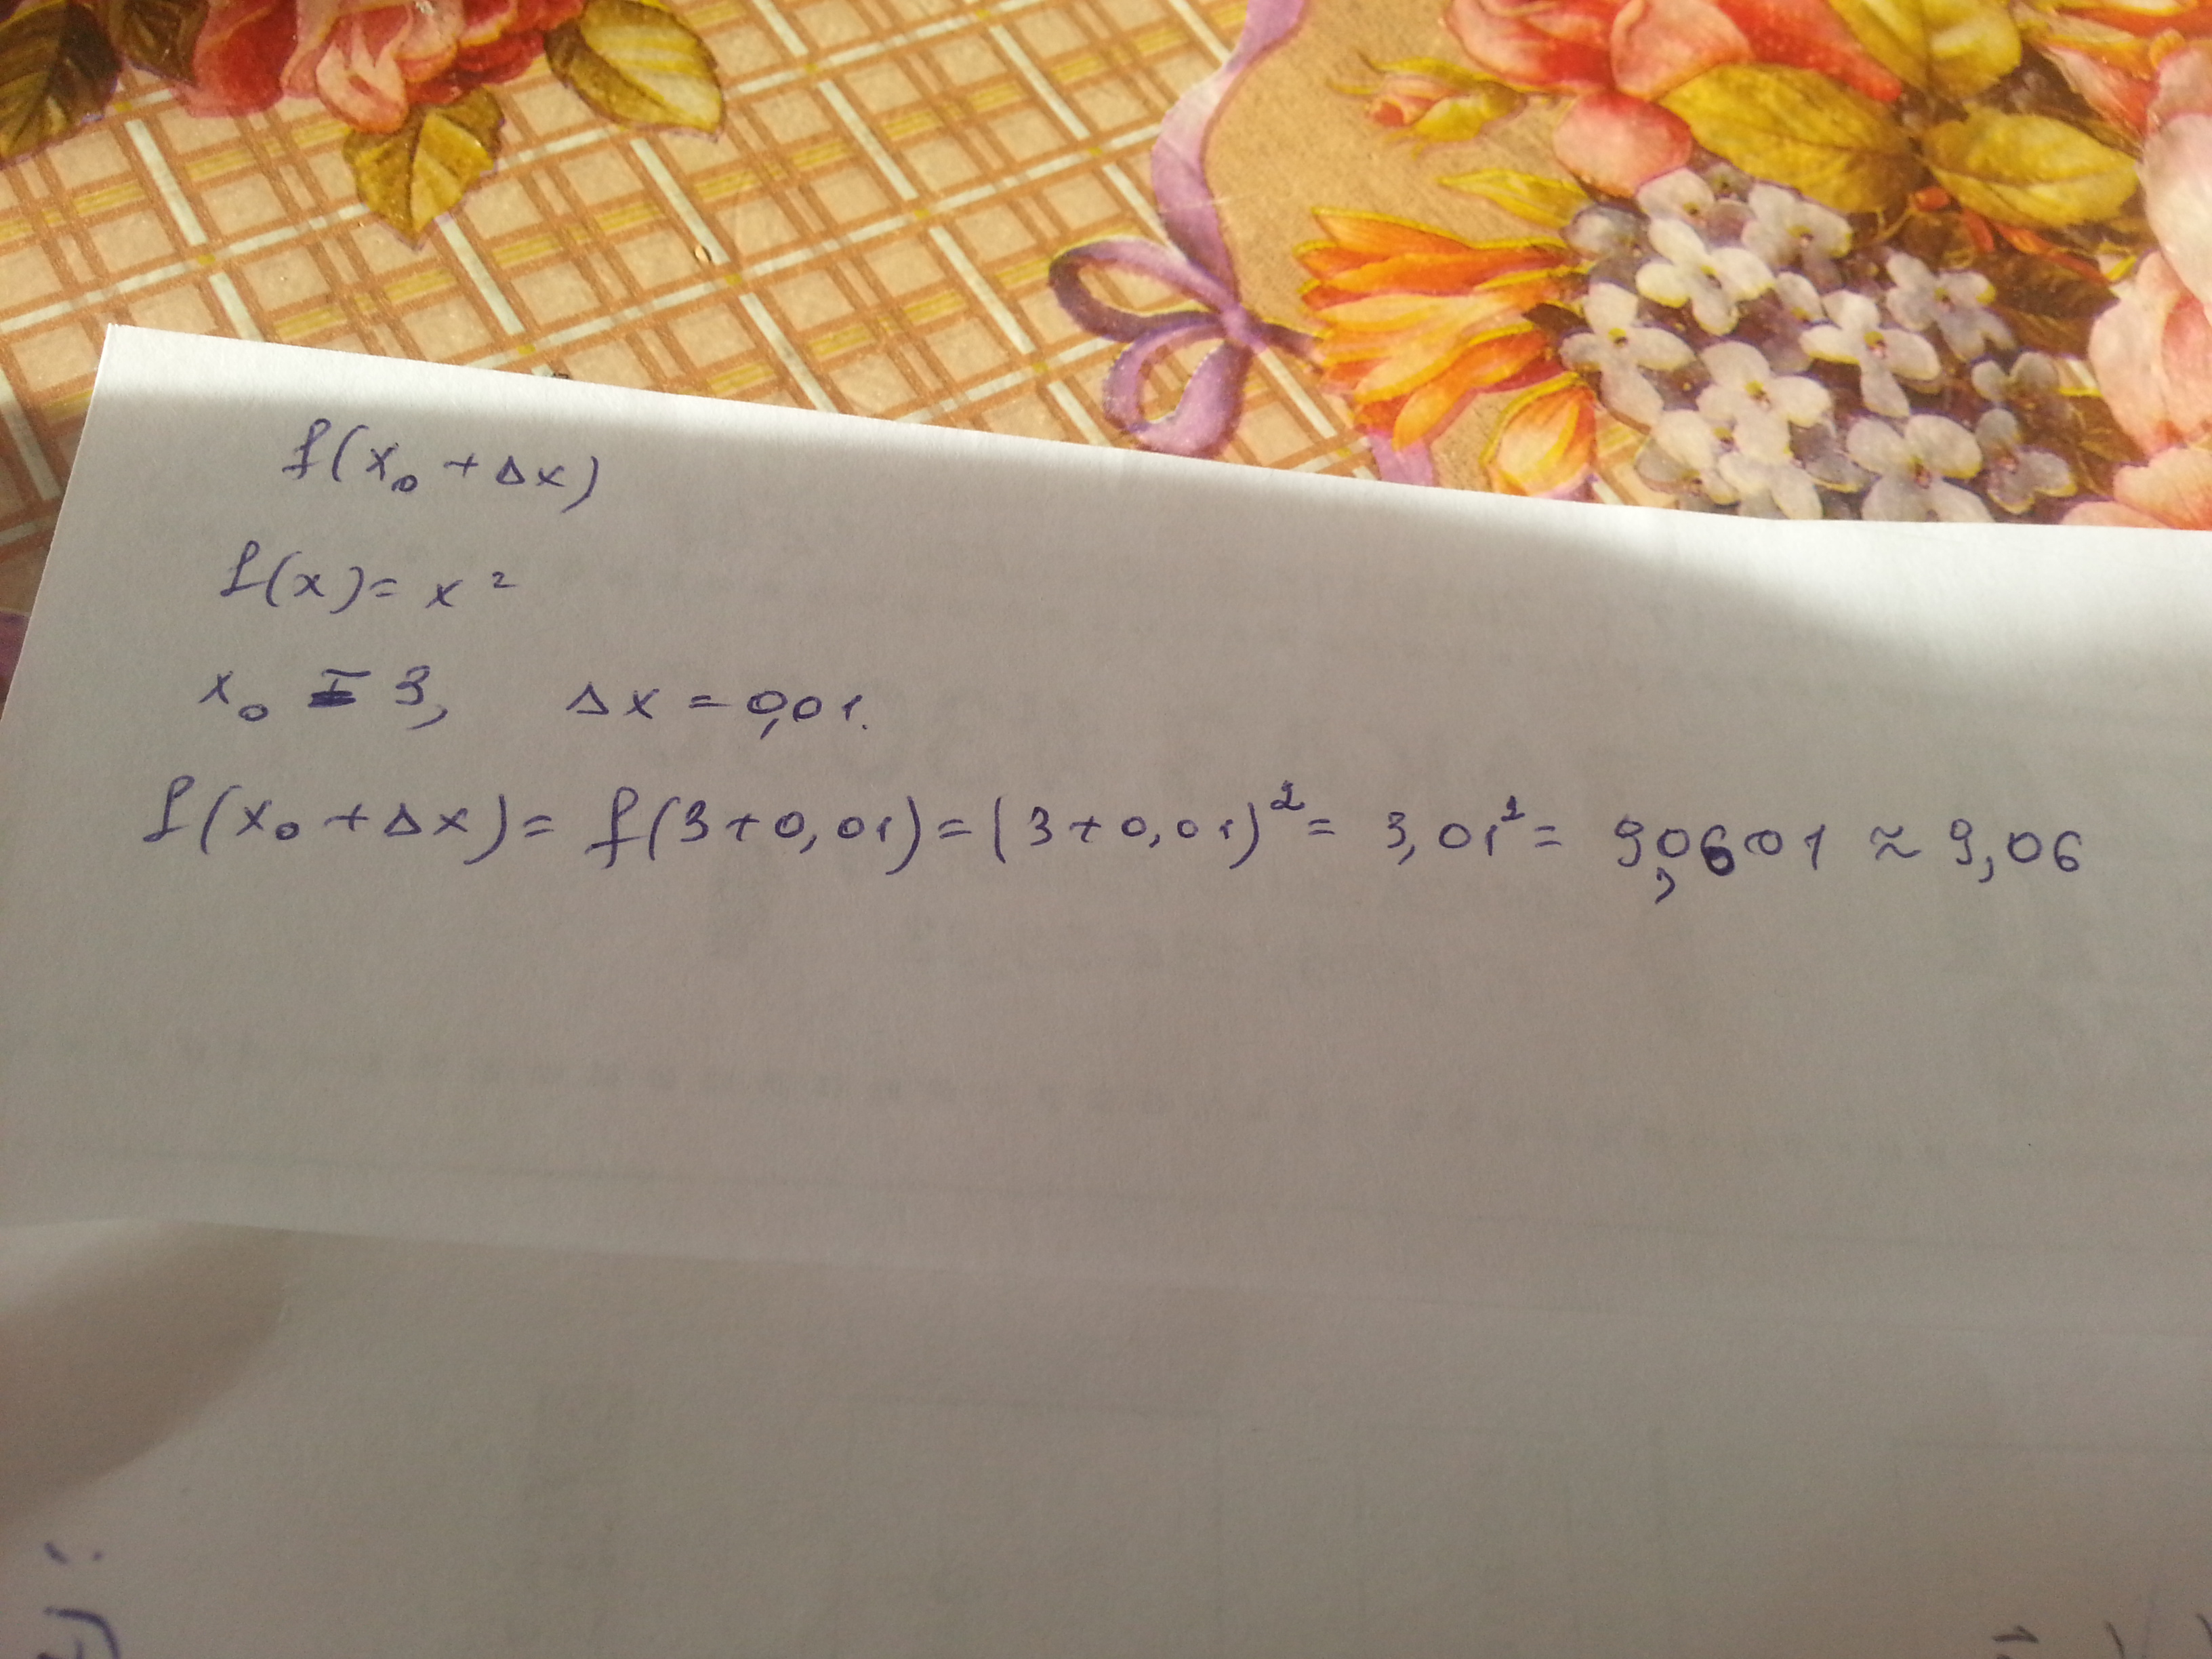 f(x₀ + Δx)
f(x) = x²
x₀ = 3, Δx = 0,01.
f(x₀ + Δx) = f(3+0,01) = (3+0,01)² = 3,01² = 9,0601 ≈ 9,06